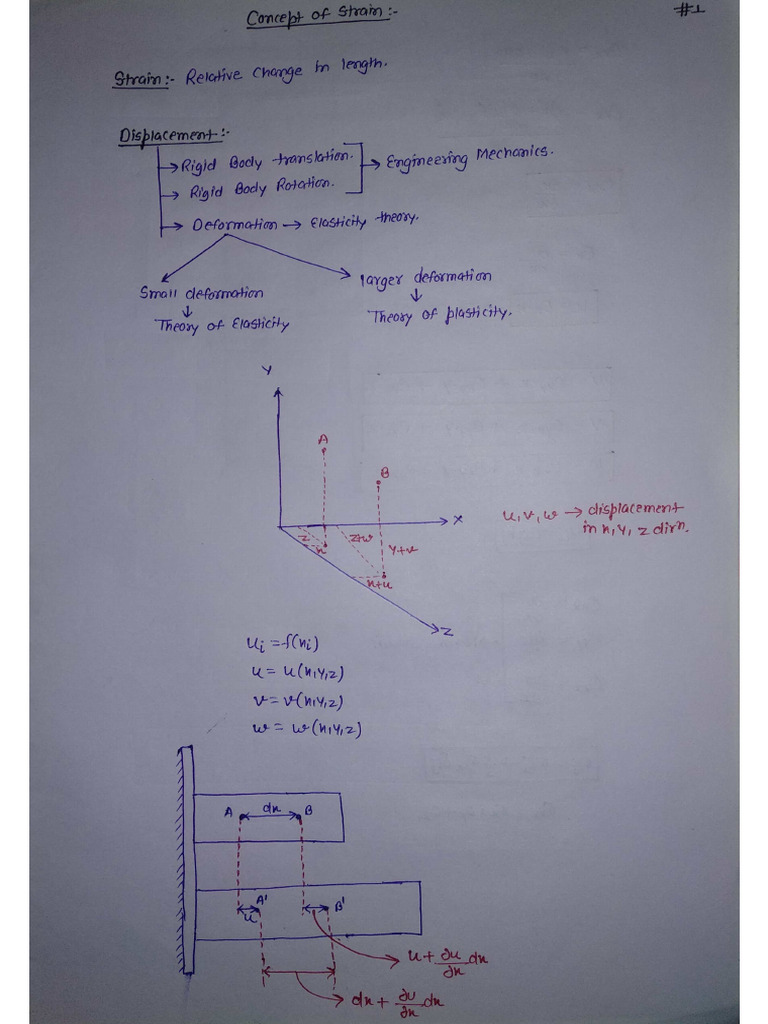 Concept of Strain:-
#1
Strain:- Relative change in length.
Displacement:-
→ Rigid Body translation.
→ Rigid Body Rotation.
→ Engineering Mechanics.
→ Deformation → Elasticity theory.
Small deformation
↓
Theory of Elasticity
larger deformation
↓
Theory of plasticity.
Y
A
B
X
z
x
z+w
y+v
x+u
Z
u, v, w → displacement
in x, y, z dirn.
ui = f(xi)
u = u(x,y,z)
v = v(x,y,z)
w = w(x,y,z)
A dx B
A' B'
u
u + ∂u/∂x dx
dx + ∂u/∂x dx